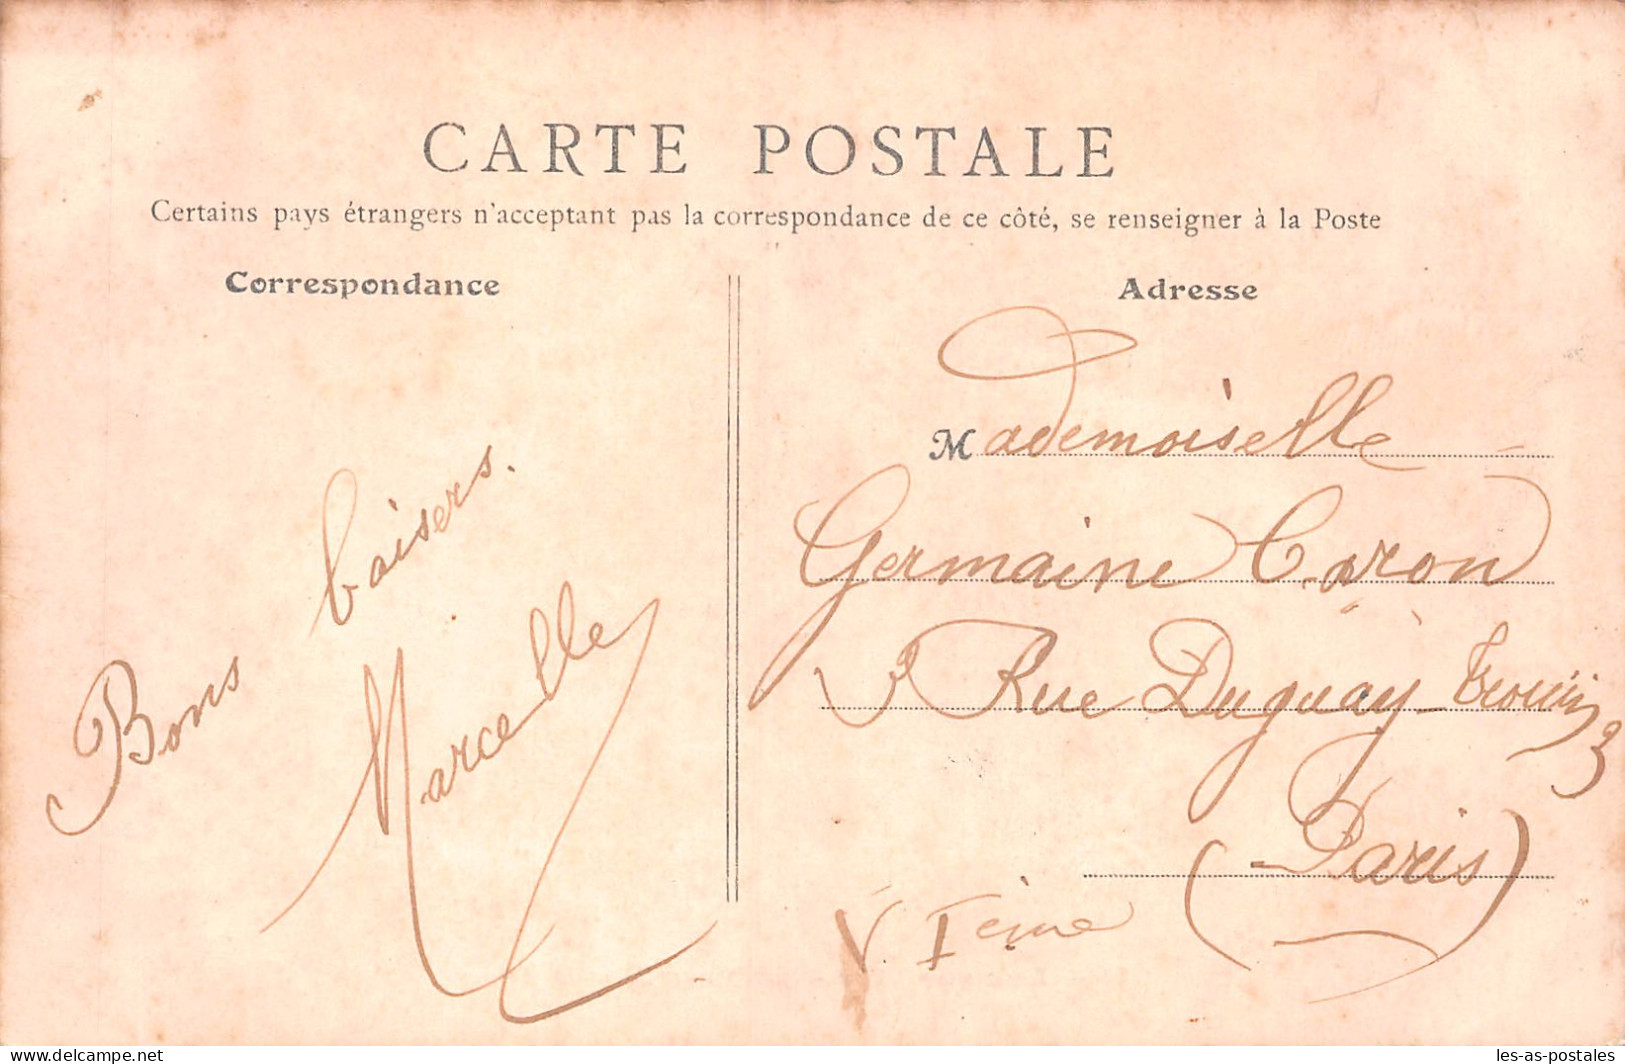 CARTE POSTALE
Certains pays étrangers n'acceptant pas la correspondance de ce côté, se renseigner à la Poste
Correspondance
Bons baisers.
Marcelle
Adresse
Mademoiselle
Germaine Caron
3 Rue Duguay-Trouin 3
(Paris)
VIème
www.delcampe.net
les-as-postales